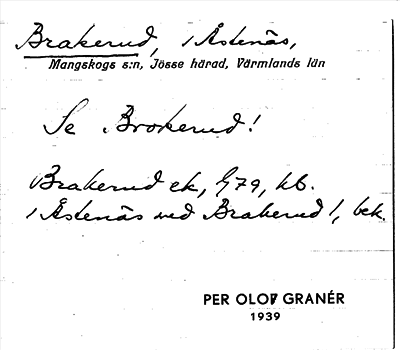 Brakerud, i Åstenäs,
Mangskogs s:n, Jösse härad, Värmlands län
Se Brokerud!
Brakerud ek, G79, kb.
i Åstenäs ved Brakerud!, bek.
PER OLOF GRANÉR
1939